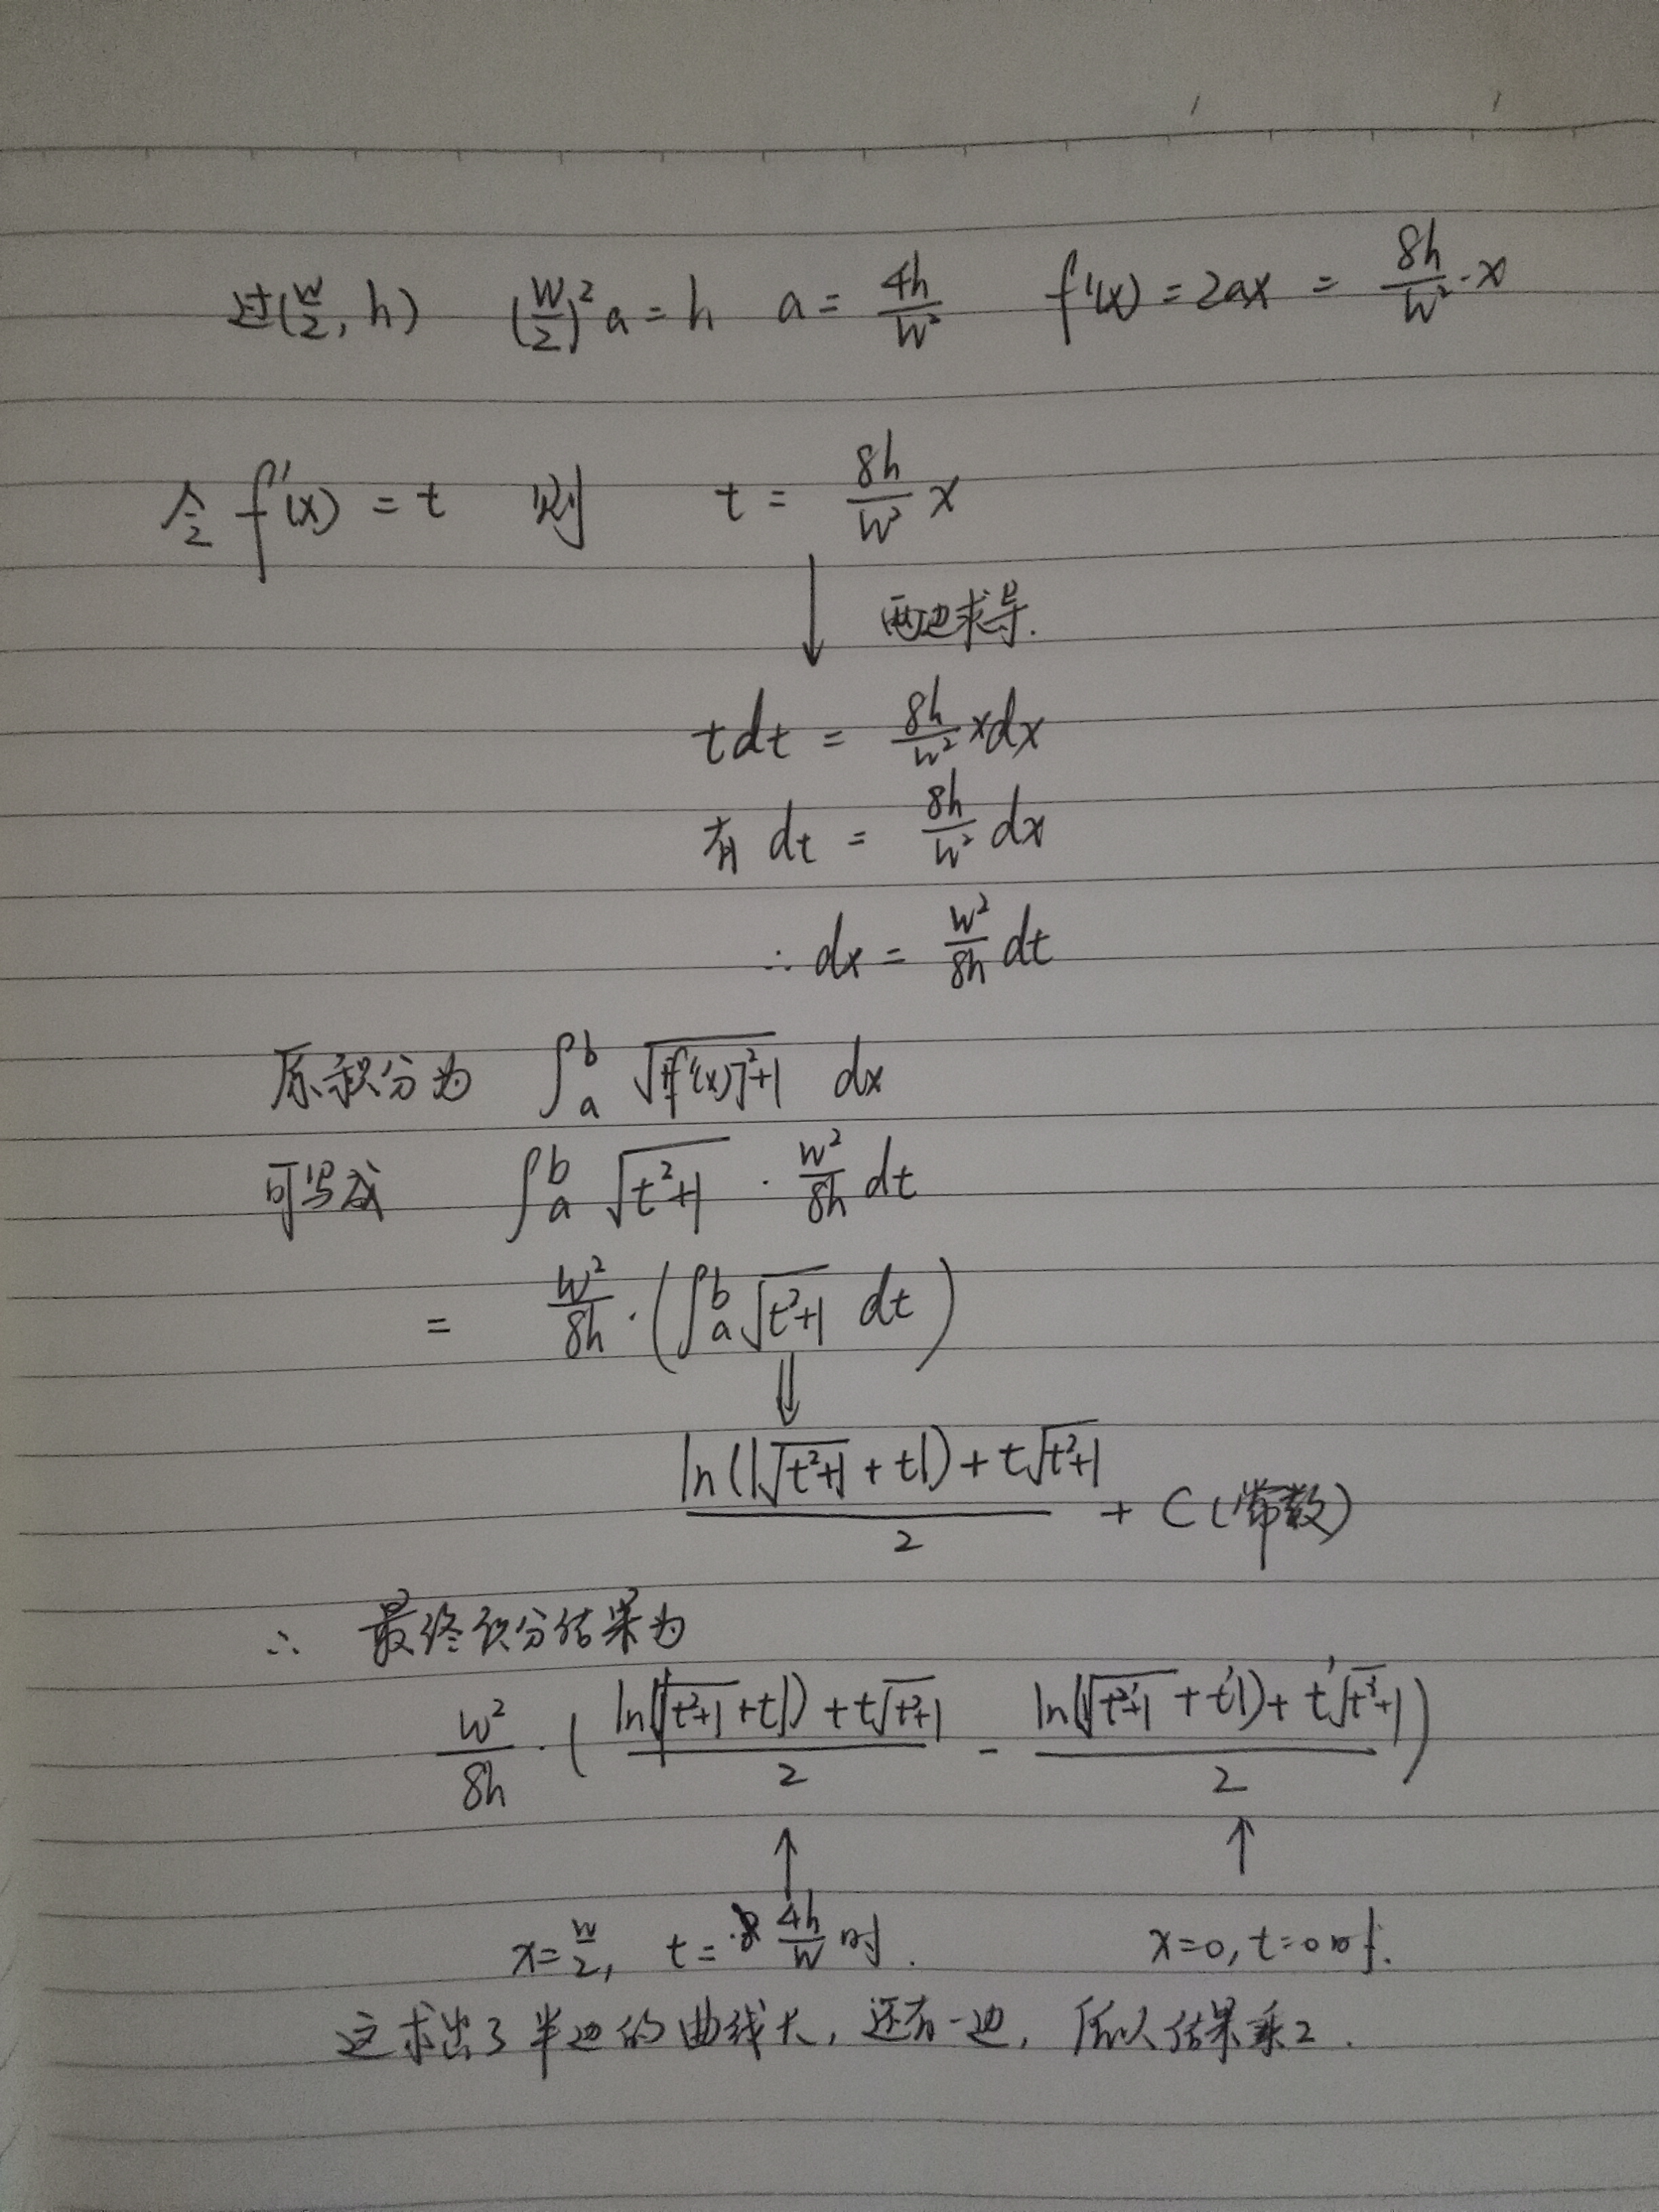 过(w/2, h) (w/2)²a = h a = 4h/w² f'(x) = 2ax = 8h/w² · x
令 f'(x) = t 则 t = 8h/w² x
两边求导.
tdt = 8h/w² xdx
有 dt = 8h/w² dx
∴ dx = w²/8h dt
原积分为 ∫_a^b √([f'(x)]²+1) dx
可写成 ∫_a^b √(t²+1) · w²/8h dt
= w²/8h · (∫_a^b √(t²+1) dt)
⇓
(ln(|√(t²+1) + t|) + t√(t²+1))/2 + C(常数)
∴ 最终积分结果为
w²/8h · ((ln(|√(t²+1) + t|) + t√(t²+1))/2 - (ln(|√(t'²+1) + t'|) + t'√(t'²+1))/2)
↑ ↑
x = w/2, t = 4h/w 时. x=0, t=0时.
这求出了半边的曲线长, 还有一边, 所以结果乘2.